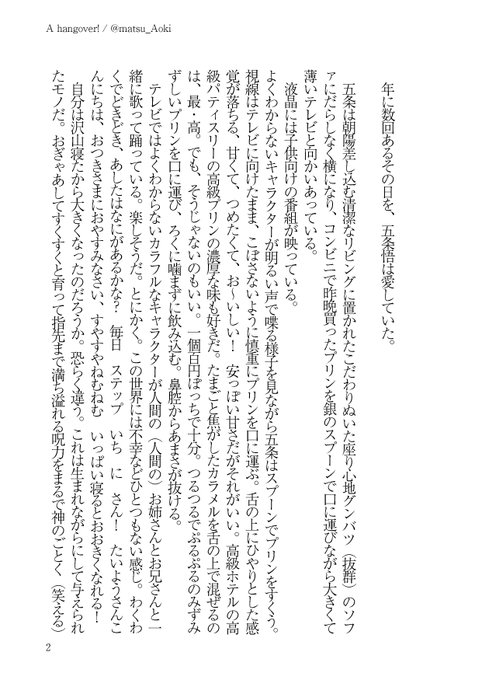 A hangover! / @matsu_Aoki
年に数回あるその日を、五条悟は愛していた。
五条は朝陽差し込む清潔なリビングに置かれたこだわりぬいた座り心地グンバツ（抜群）のソフ
ァにだらしなく横になり、コンビニで昨晩買ったプリンを銀のスプーンで口に運びながら大きくて
薄いテレビと向かいあっている。
液晶には子供向けの番組が映っている。
よくわからないキャラクターが明るい声で喋る様子を見ながら五条はスプーンでプリンをすくう。
視線はテレビに向けたまま、こぼさないように慎重にプリンを口に運ぶ。舌の上にひやりとした感
覚が落ちる、甘くて、つめたくて、お〜いしい！　安っぽい甘さだがそれがいい。高級ホテルの高
級パティスリーの高級プリンの濃厚な味も好きだ。たまごと焦がしたカラメルを舌の上で混ぜるの
は、最・高。でも、そうじゃないのもいい。一個百円ぽっちで十分。つるつるでぷるぷるのみずみ
ずしいプリンを口に運び、ろくに噛まずに飲み込む。鼻腔からあまさが抜ける。
テレビではよくわからないカラフルなキャラクターが人間の（人間の）お姉さんとお兄さんと一
緒に歌って踊っている。楽しそうだ。とにかく。この世界には不幸などひとつもない感じ。わくわ
くでどきどき、あしたはなにがあるかな？　毎日　ステップ　いち　に　さん！　たいようさんこ
んにちは、おつきさまにおやすみなさい、すやすやねむねむ　いっぱい寝るとおおきくなれる！
自分は沢山寝たから大きくなったのだろうか。恐らく違う。これは生まれながらにして与えられ
たモノだ。おぎゃあしてすくすくと育って指先まで満ち溢れる呪力をまるで神のごとく（笑える）
2